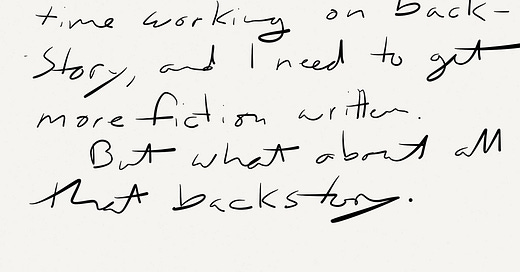 time working on back-
story, and I need to get
more fiction written.
But what about all
that backstory.